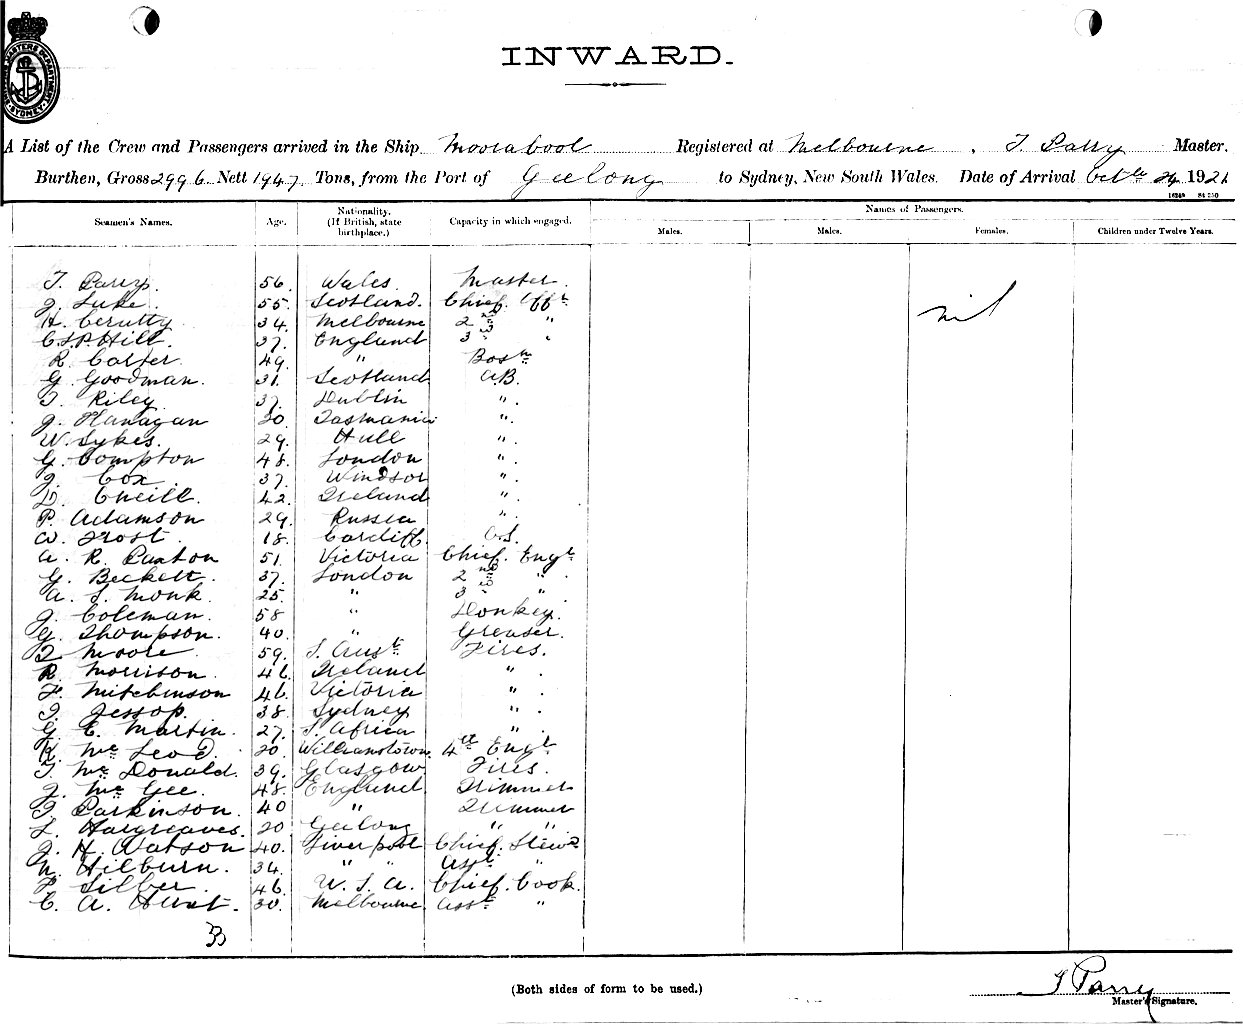 INWARD.
A List of the Crew and Passengers arrived in the Ship Moorabool Registered at Melbourne, T Parry Master.
Burthen, Gross 2996 Nett 1947 Tons, from the Port of Geelong to Sydney, New South Wales. Date of Arrival Octbr 24 1921
Seamen's Names. Age. Nationality. (If British, state birthplace.) Capacity in which engaged. Names of Passengers.
Males. Males. Females. Children under Twelve Years.
T. Parry. 56. Wales. Master.
J. Luke. 55. Scotland. Chief. Offr
H. Cerutty 34. Melbourne 2nd "
C.S.P. Hill. 37. England 3rd "
nil
R. Carter. 49. " Bosn
G. Goodman. 31. Scotland A.B.
T. Riley 37. Dublin " .
J. Flanagan 30. Tasmania " .
W. Sykes. 29. Hull " .
G. Compton 48. London " .
J. Cox. 37. Windsor " .
D. ONeill. 42. Ireland " .
P. Adamson 29. Russia " .
W. Frost. 18. Cardiff O.S.
A. R. Paxton 51. Victoria Chief. Engr
G. Beckett. 37. London 2nd " .
A. S. Monk. 25. " 3rd "
J. Coleman. 58 " Donkey.
G. Thompson. 40. " Greaser.
T. Moore. 59. S. Aust. Fires.
R. Morrison. 46. Ireland " .
F. Mitchinson 46. Victoria " .
T. Jessop. 38. Sydney " .
G. E. Martin. 27. S. Africa " .
K. McLeod. 20. Williamstown. 4th Engr
T. McDonald. 39. Glasgow. Fires.
J. McGee. 48. England Trimmer
T. Parkinson. 40 " Trimmer
L. Hargreaves. 20 Geelong " "
J. H. Watson 40. Liverpool Chief. Stewd
N. Hilburn. 34. " " Asst "
F. Silber. 46. U. S. A. Chief. Cook.
C. A. Hunt. 30. Melbourne. Asst "
33
(Both sides of form to be used.)
T Parry
Master's Signature.